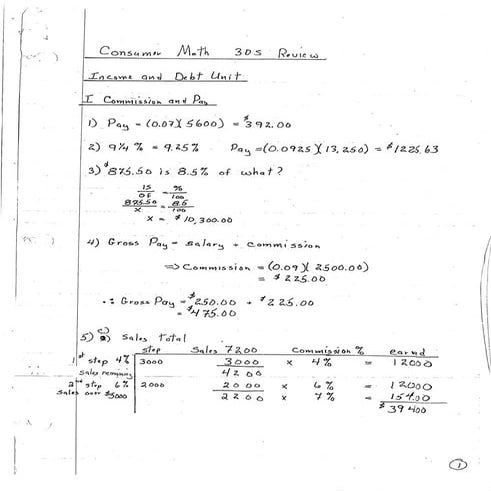 Consumer Math 30S Review
Income and Debt Unit
I Commission and Pay
1) Pay = (0.07)(5600) = $392.00
2) 9¼ % = 9.25% Pay = (0.0925)(13,250) = $1225.63
3) $875.50 is 8.5% of what?
IS / OF = % / 100
875.50 / x = 8.5 / 100
x = $10,300.00
4) Gross Pay = salary + commission
⇒ Commission = (0.09)(2500.00)
= $225.00
∴ Gross Pay = $250.00 + $225.00
= $475.00
5) a) Sales Total
step Sales 7200 Commission % earnd
1st step 4% 3000 3000 × 4% = 12000
Sales remaining 4200
2nd step 6% 2000 2000 × 6% = 12000
Sales over $5000 2200 × 7% = 154.00
$39400
1